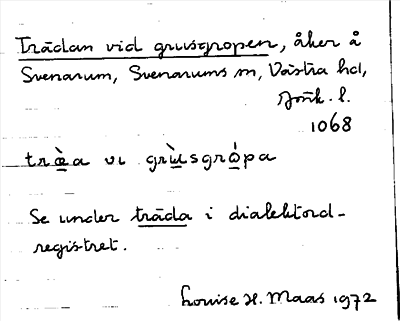 Trädan vid grusgropen, åker å
Svenarum, Svenarums sn, Västra hd,
Jönk. l.
1068
træ̀a vi grùsgrópa
Se under träda i dialektord-
registret.
Louise H. Maas 1972